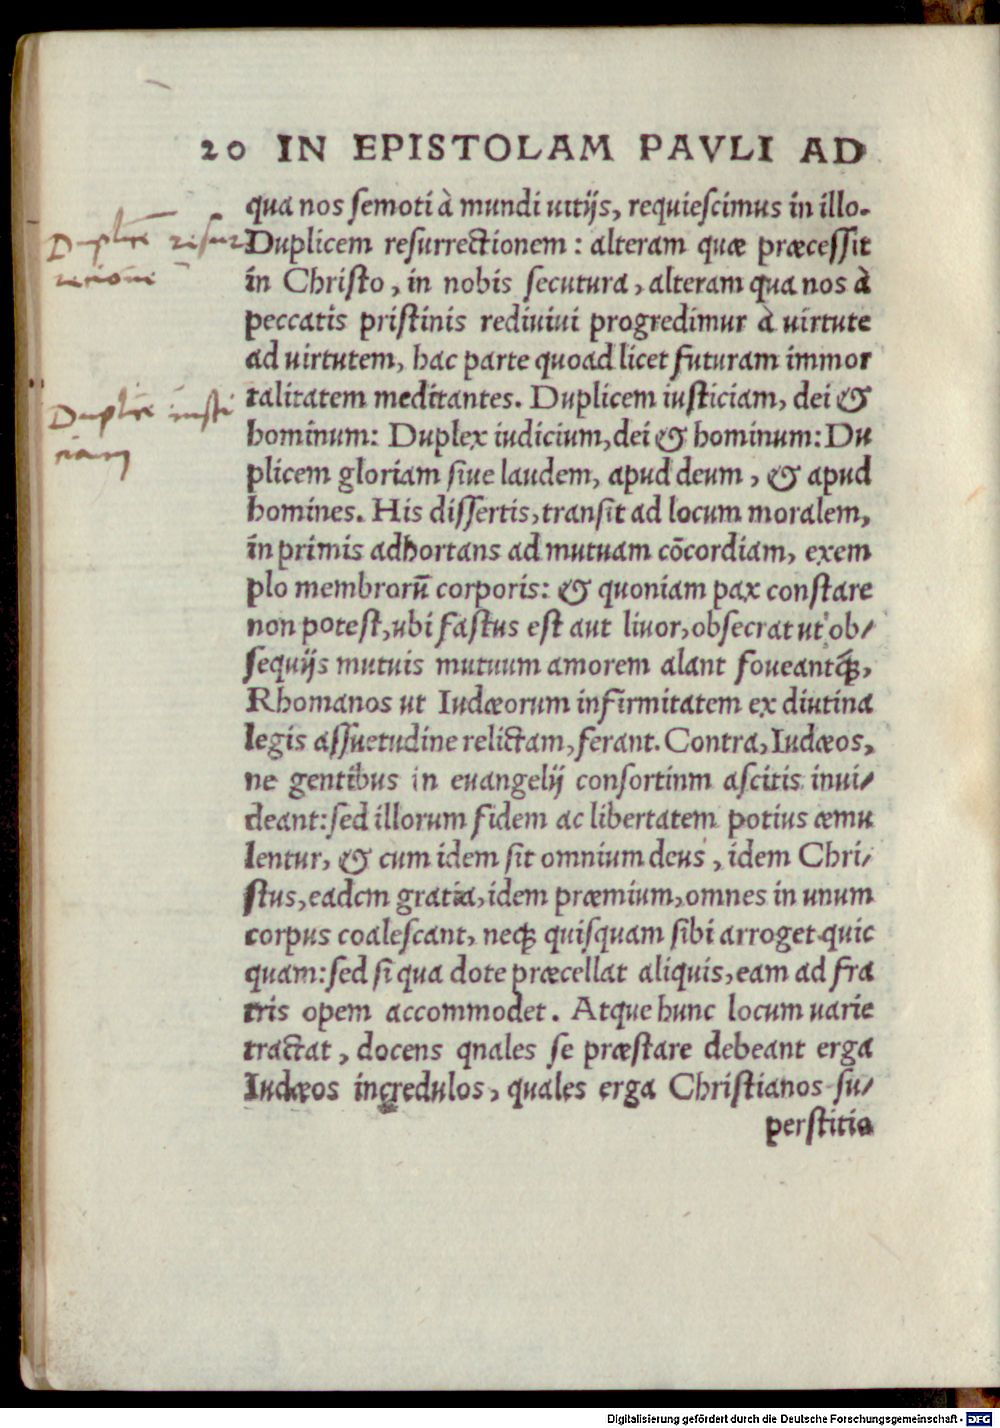 20 IN EPISTOLAM PAVLI AD
qua nos ſemoti à mundi uitijs, requieſcimus in illo.
Duplicē reſur
Duplicem reſurrectionem: alteram quæ præceſſit
rectionē
in Chriſto, in nobis ſecutura, alteram qua nos à
peccatis priſtinis rediuiui progredimur à uirtute
ad uirtutem, hac parte quoad licet futuram immor
Duplicē iuſti
talitatem meditantes. Duplicem iuſticiam, dei &
ciam
hominum: Duplex iudicium, dei & hominum: Du
plicem gloriam ſiue laudem, apud deum, & apud
homines. His diſſertis, tranſit ad locum moralem,
in primis adhortans ad mutuam cōcordiam, exem
plo membrorū corporis: & quoniam pax conſtare
non poteſt, ubi faſtus eſt aut liuor, obſecrat ut ob/
ſequijs mutuis mutuum amorem alant foueantq́;,
Rhomanos ut Iudæorum infirmitatem ex diutina
legis aſſuetudine relictam, ferant. Contra, Iudæos,
ne gentibus in euangelij conſortinm aſcitis inui/
deant: ſed illorum fidem ac libertatem potius æmu
lentur, & cum idem ſit omnium deus, idem Chri/
ſtus, eadem gratia, idem præmium, omnes in unum
corpus coaleſcant, neq; quiſquam ſibi arroget quic
quam: ſed ſi qua dote præcellat aliquis, eam ad fra
tris opem accommodet. Atque hunc locum uarie
tractat, docens qnales ſe præſtare debeant erga
Iudæos incredulos, quales erga Chriſtianos ſu/
perſtitio
Digitalisierung gefördert durch die Deutsche Forschungsgemeinschaft - DFG